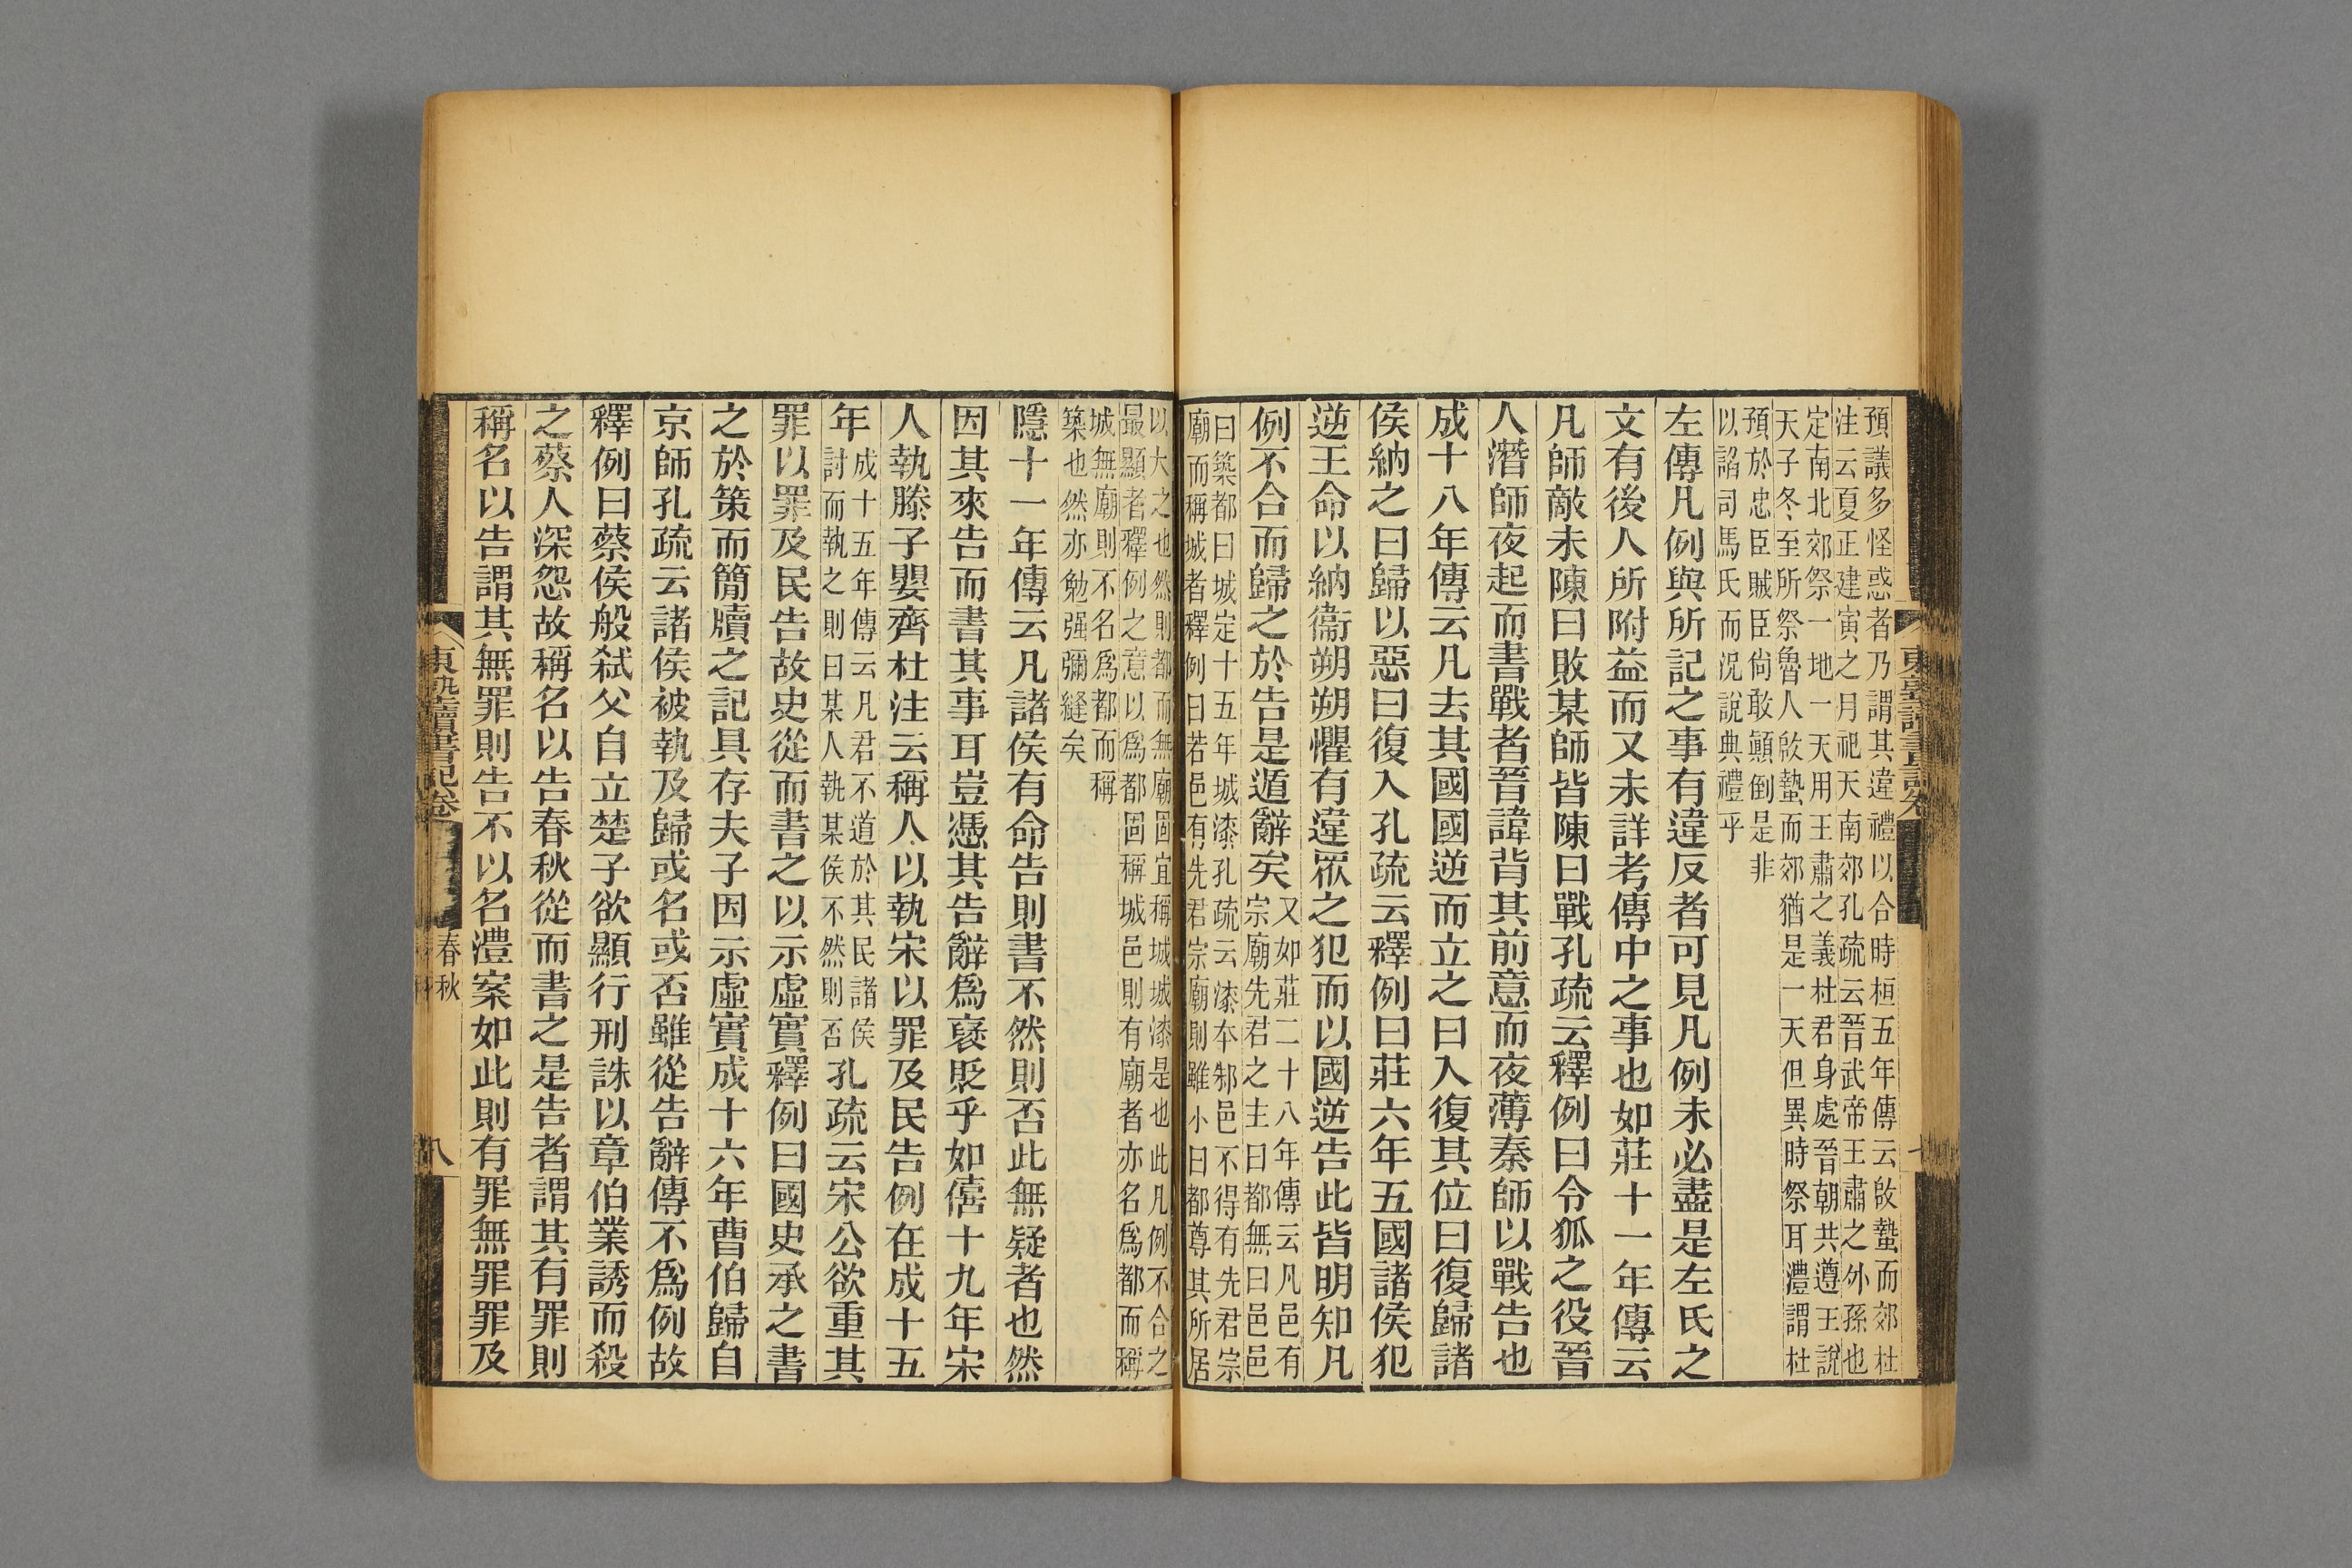 預議多怪惑者乃謂其違禮以合時桓五年傳云啟蟄而郊杜
注云夏正建寅之月祀天南郊孔疏云晉武帝王肅之外孫也
定南北郊祭一地一天用王肅之義杜君身處晉朝共遵王說
天子冬至所祭魯人啟蟄而郊猶是一天但異時祭耳澧謂杜
預於忠臣賊臣尙敢顚倒是非
以諂司馬氏而況說典禮乎
左傳凡例與所記之事有違反者可見凡例未必盡是左氏之
文有後人所附益而又未詳考傳中之事也如莊十一年傳云
凡師敵未陳曰敗某師皆陳曰戰孔疏云釋例曰令狐之役晉
人潛師夜起而書戰者晉諱背其前意而夜薄秦師以戰告也
成十八年傳云凡去其國國逆而立之曰入復其位曰復歸諸
侯納之曰歸以惡曰復入孔疏云釋例曰莊六年五國諸侯犯
逆王命以納衞朔朔懼有違眾之犯而以國逆告此皆明知凡
例不合而歸之於告是遁辭矣
又如莊二十八年傳云凡邑有
宗廟先君之主曰都無曰邑邑
曰築都曰城定十五年城漆孔疏云漆本邾邑不得有先君宗
廟而稱城者釋例曰若邑有先君宗廟則雖小曰都尊其所居
以大之也然則都而無廟固宜稱城城漆是也此凡例不合之
最顯者釋例之意以爲都固稱城邑則有廟者亦名爲都而稱
城無廟則不名爲都而稱
築也然亦勉强彌縫矣
隱十一年傳云凡諸侯有命告則書不然則否此無疑者也然
因其來告而書其事耳豈憑其告辭爲襃貶乎如僖十九年宋
人執滕子嬰齊杜注云稱人以執宋以罪及民告例在成十五
年
成十五年傳云凡君不道於其民諸侯
討而執之則曰某人執某侯不然則否
孔疏云宋公欲重其
罪以罪及民告故史從而書之以示虛實釋例曰國史承之書
之於策而簡牘之記具存夫子因示虛實成十六年曹伯歸自
京師孔疏云諸侯被執及歸或名或否雖從告辭傳不爲例故
釋例曰蔡侯般弒父自立楚子欲顯行刑誅以章伯業誘而殺
之蔡人深怨故稱名以告春秋從而書之是告者謂其有罪則
稱名以告謂其無罪則告不以名澧案如此則有罪無罪罪及
東塾讀書記卷
春秋
八